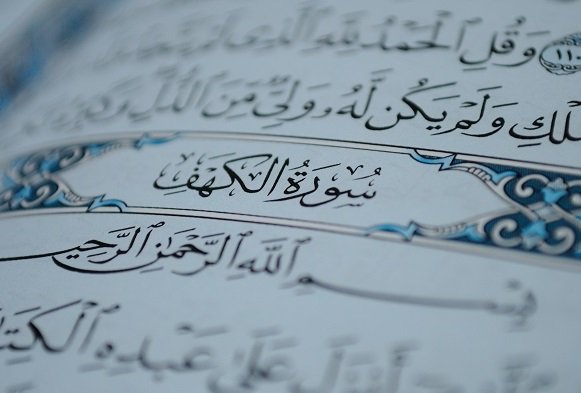 ١١٠ وَقُلِ ٱلْحَمْدُ لِلَّهِ ٱلَّذِى لَمْ
وَلَمْ يَكُن لَّهُۥ وَلِىٌّ مِّنَ ٱلذُّلِّ
سُورَةُ الكَهْفِ
بِسْمِ ٱللَّهِ ٱلرَّحْمَٰنِ ٱلرَّحِيـ
أَنزَلَ عَلَىٰ عَبْدِهِ ٱلْكِتَـ